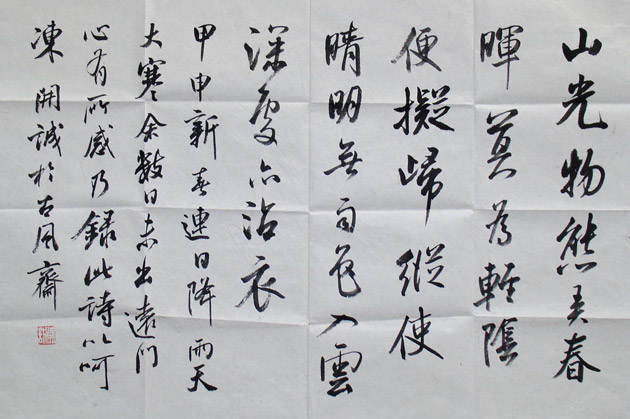 山光物態弄春
暉莫為輕陰
便擬歸縱使
晴明無雨色入雲
深處亦沾衣
甲申新春連日降雨天
大寒余數日未出遠門
心有所感乃錄此詩以呵
凍開誠於古風齋